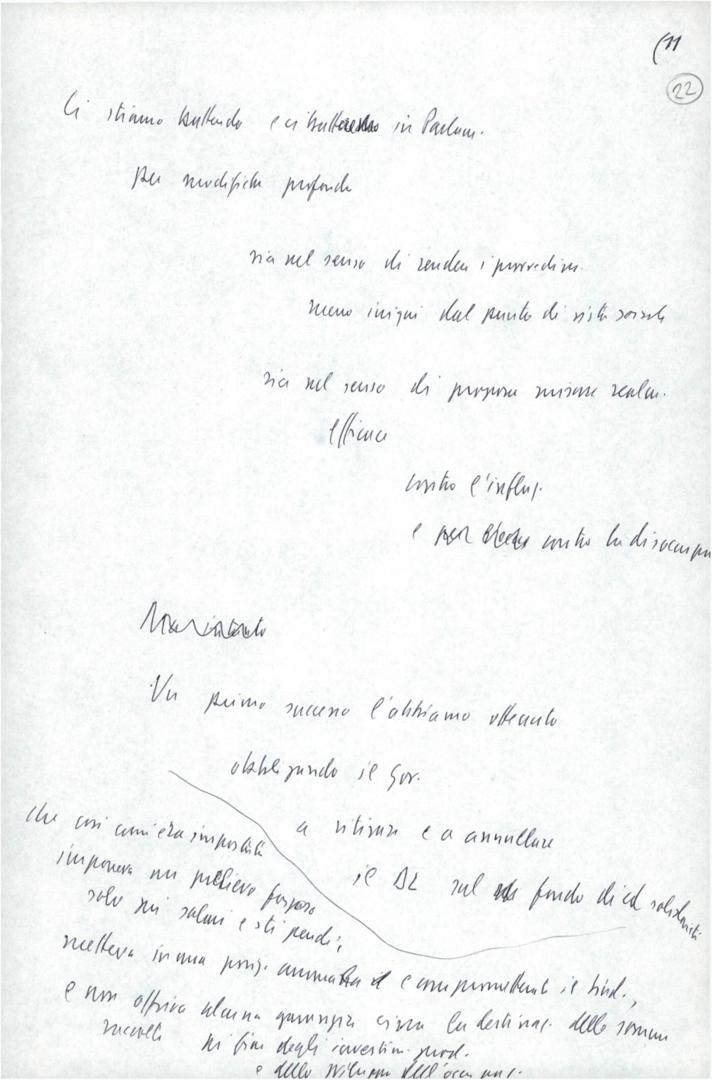 (11
22
Ci stiamo battendo e ci batteremo in Parlam.
per modifiche profonde
sia nel senso di rendere i provvedim.
meno iniqui dal punto di vista sociale
sia nel senso di proporre misure realm.
efficaci
contro l'inflaz.
e contro la disoccupaz
Un primo successo l'abbiamo ottenuto
obbligando il Gov.
a ritirare e a annullare
il DL sul fondo di cd solidarietà
che così com'era impostato
imponeva un prelievo forzoso
solo sui salari e stipendi,
metteva in una posiz. e compromettente il sind.,
e non offriva alcuna garanzia circa la destinaz. delle somme
raccolte ai fini degli investim. prod.
e dello sviluppo dell'occupaz.